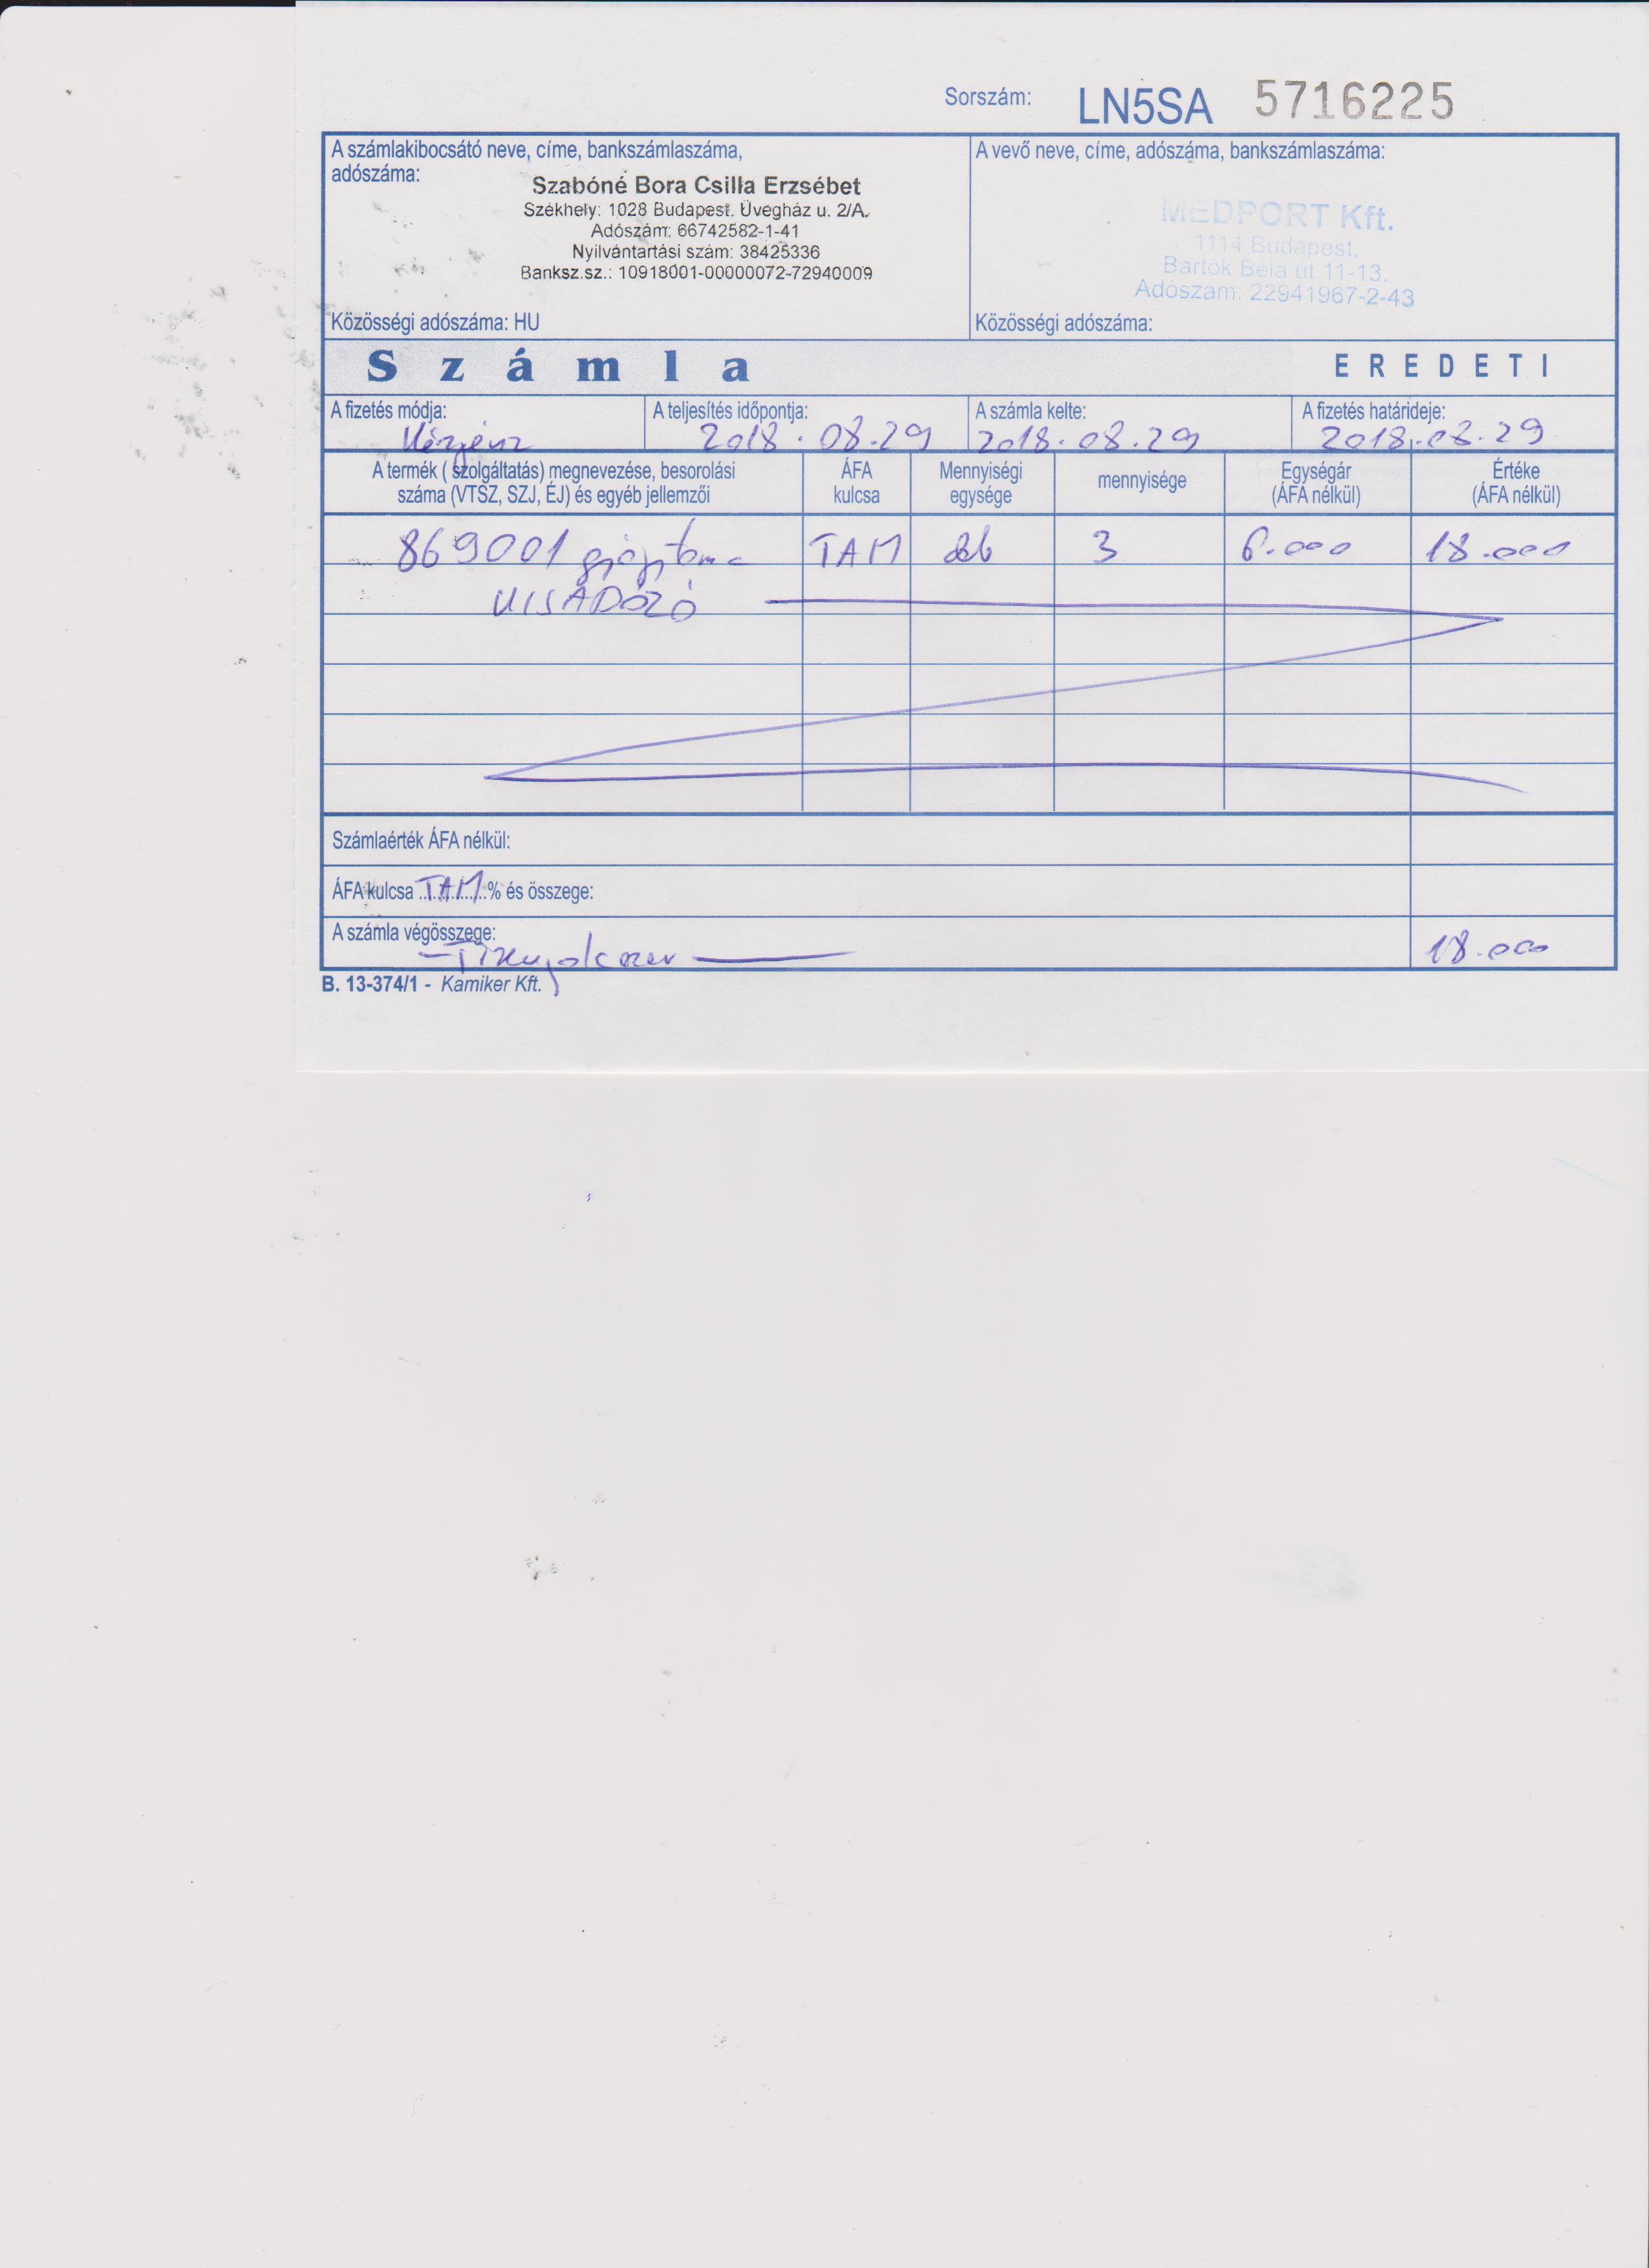 Sorszám: LN5SA 5716225
A számlakibocsátó neve, címe, bankszámlaszáma,
adószáma:
Szabóné Bora Csilla Erzsébet
Székhely: 1028 Budapest. Üvegház u. 2/A.
Adószám: 66742582-1-41
Nyilvántartási szám: 38425336
Banksz.sz.: 10918001-00000072-72940009
Közösségi adószáma: HU
A vevő neve, címe, adószáma, bankszámlaszáma:
MEDPORT Kft.
1114 Budapest,
Bartók Béla út 11-13.
Adószám: 22941967-2-43
Közösségi adószáma:
Számla EREDETI
A fizetés módja: A teljesítés időpontja: A számla kelte: A fizetés határideje:
2018.08.29 2018.08.29 2018.08.29
A termék ( szolgáltatás) megnevezése, besorolási
száma (VTSZ, SZJ, ÉJ) és egyéb jellemzői
ÁFA
kulcsa
Mennyiségi
egysége
mennyisége
Egységár
(ÁFA nélkül)
Értéke
(ÁFA nélkül)
869001 TAM db 3 6.000 18.000
KISADÓZÓ
Számlaérték ÁFA nélkül:
ÁFA kulcsa TAM % és összege:
A számla végösszege:
18.000
B. 13-374/1 - Kamiker Kft.